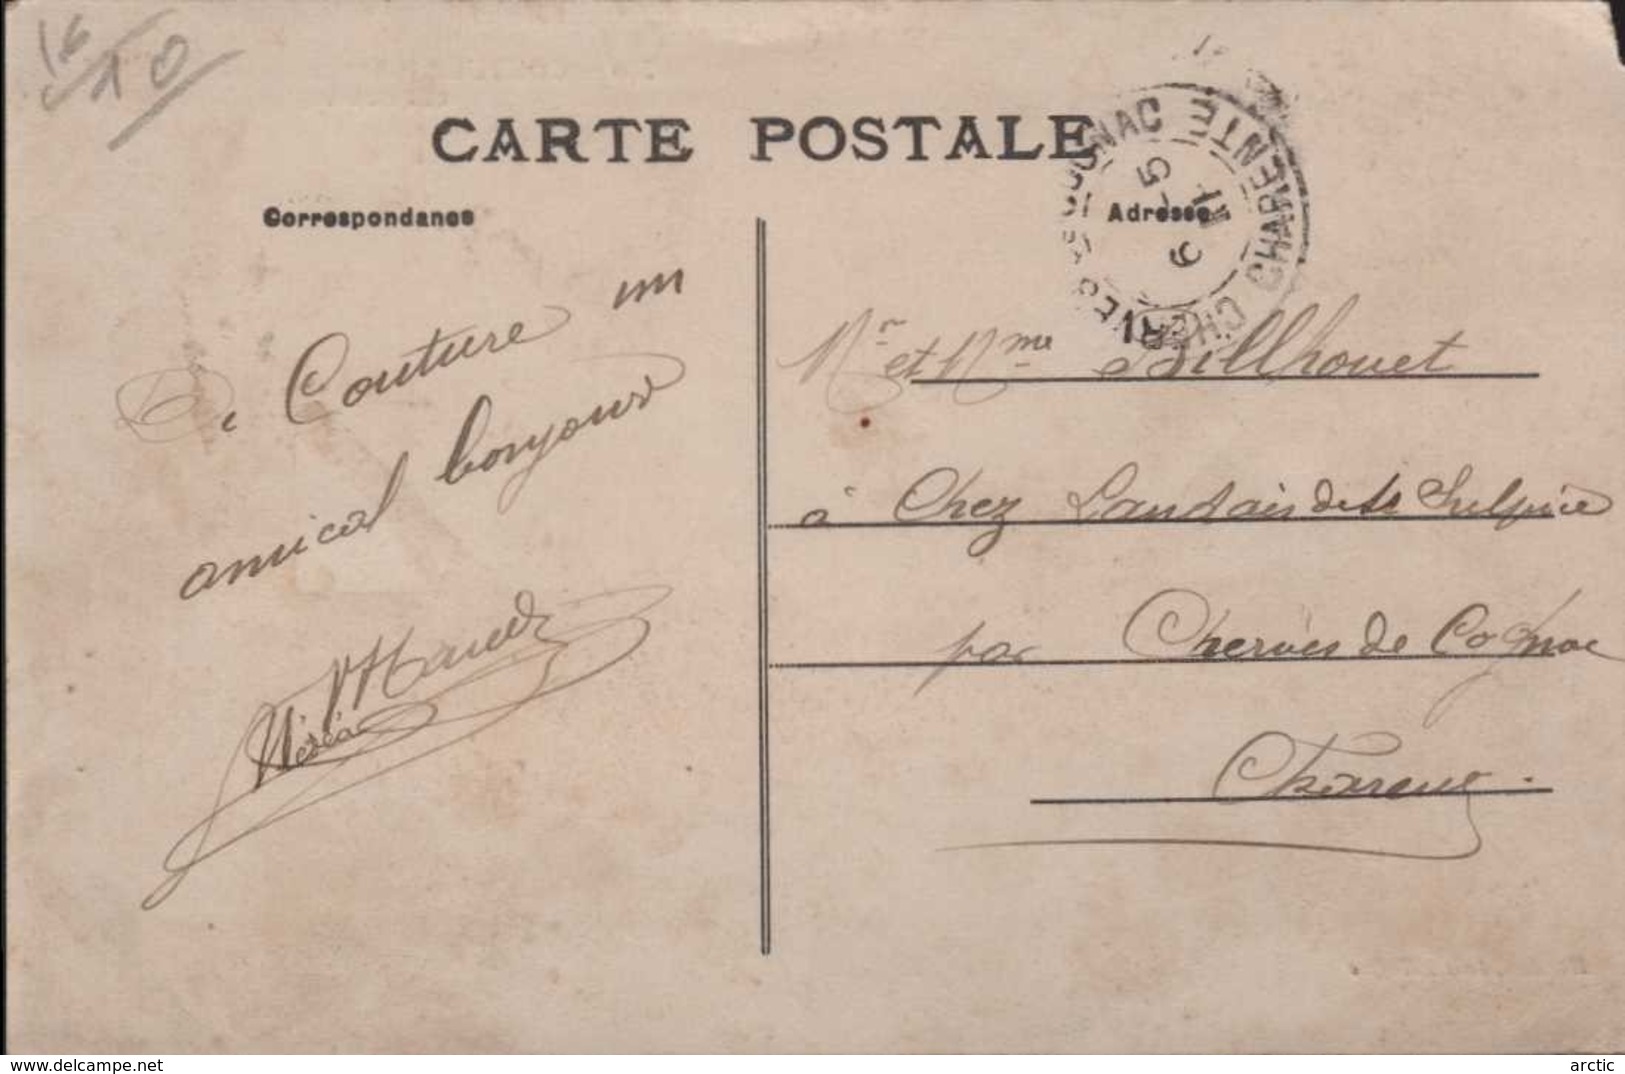 16
10
CARTE POSTALE
Correspondance
Adresse
CHERVES DE COGNAC CHARENTE
5
6
11
De Couture un
amical bonjour
Mr et Mme Billhouet
à Chez Landais de St Sulpice
par Cherves de Cognac
Charente.
www.delcampe.net
arctic